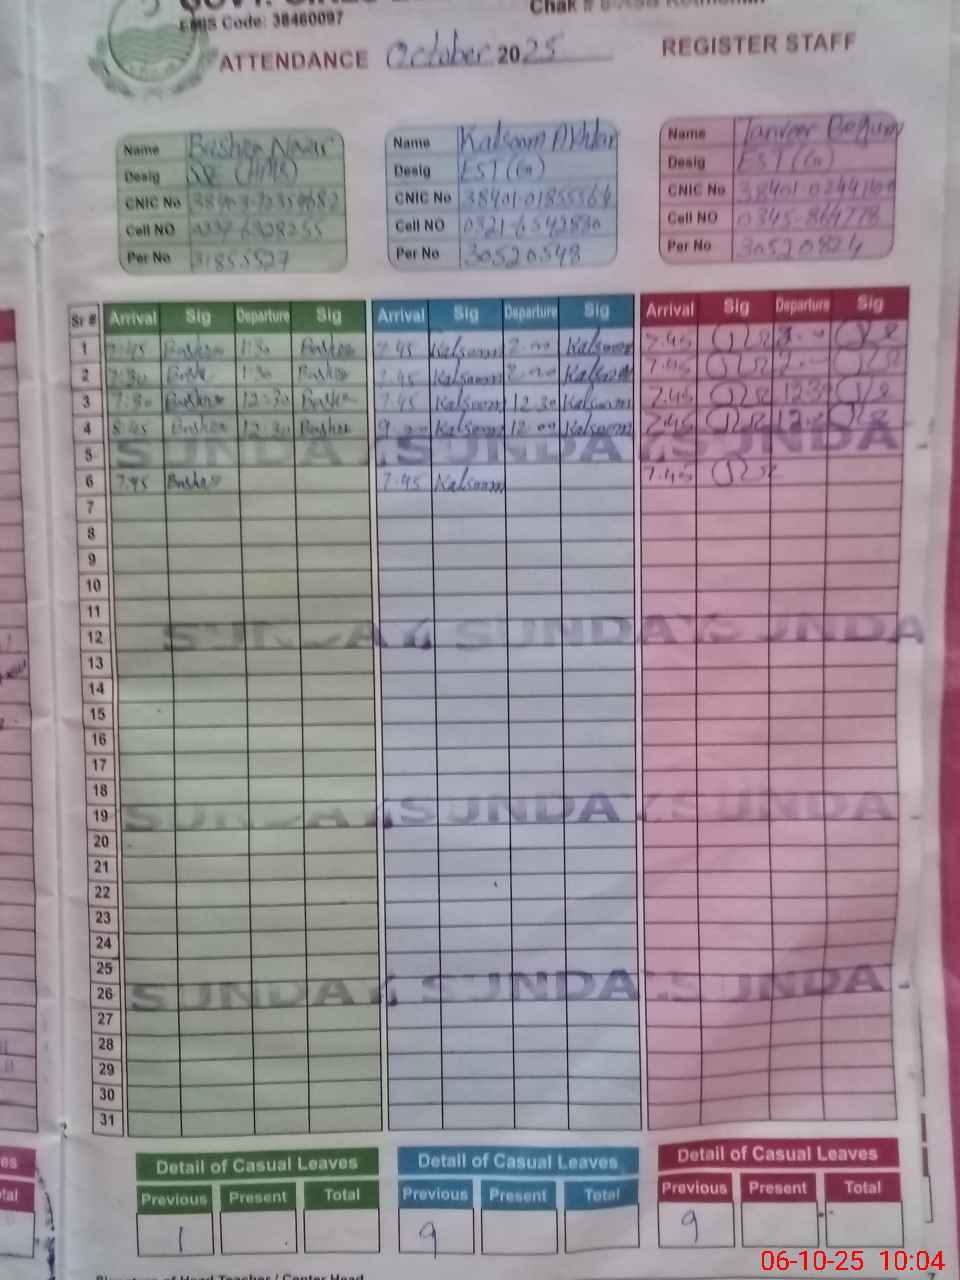 EMIS Code: 38460097
Chak #
ATTENDANCE October 2025 REGISTER STAFF
Name Bushra Nawaz
Desig
CNIC No
Cell NO
Per No 31855527
Name Kalsoom Akhtar
Desig EST (G)
CNIC No 38401-01855564
Cell NO 0321-6542830
Per No 30520548
Name Tanveer Begum
Desig EST (G)
CNIC No
Cell NO
Per No 30520824
Sr # Arrival Sig Departure Sig Arrival Sig Departure Sig Arrival Sig Departure Sig
1 7.45 Bushra 1:30 Bushra 7.45 Kalsoom 2.00 Kalsoom 7.45
2 7:30 Bushra 1:30 Bushra 7.45 Kalsoom 2.00 Kalsoom 7.45 2.00
3 7.30 Bushra 12:30 Bushra 7.45 Kalsoom 12.30 Kalsoom 7.45 12.30
4 8.45 Bushra 12.30 Bushra 9.00 Kalsoom 12.00 Kalsoom 7.45
5 SUNDAY SUNDAY SUNDAY
6 7.45 Bushra 7.45 Kalsoom 7.45
7
8
9
10
11
12 SUNDAY SUNDAY SUNDAY
13
14
15
16
17
18
19 SUNDAY SUNDAY SUNDA
20
21
22
23
24
25
26 SUNDAY SUNDAY SUNDA
27
28
29
30
31
Detail of Casual Leaves Detail of Casual Leaves Detail of Casual Leaves
Previous Present Total Previous Present Total Previous Present Total
1 9 9
Signature of Head Teacher / Center Head
06-10-25 10:04